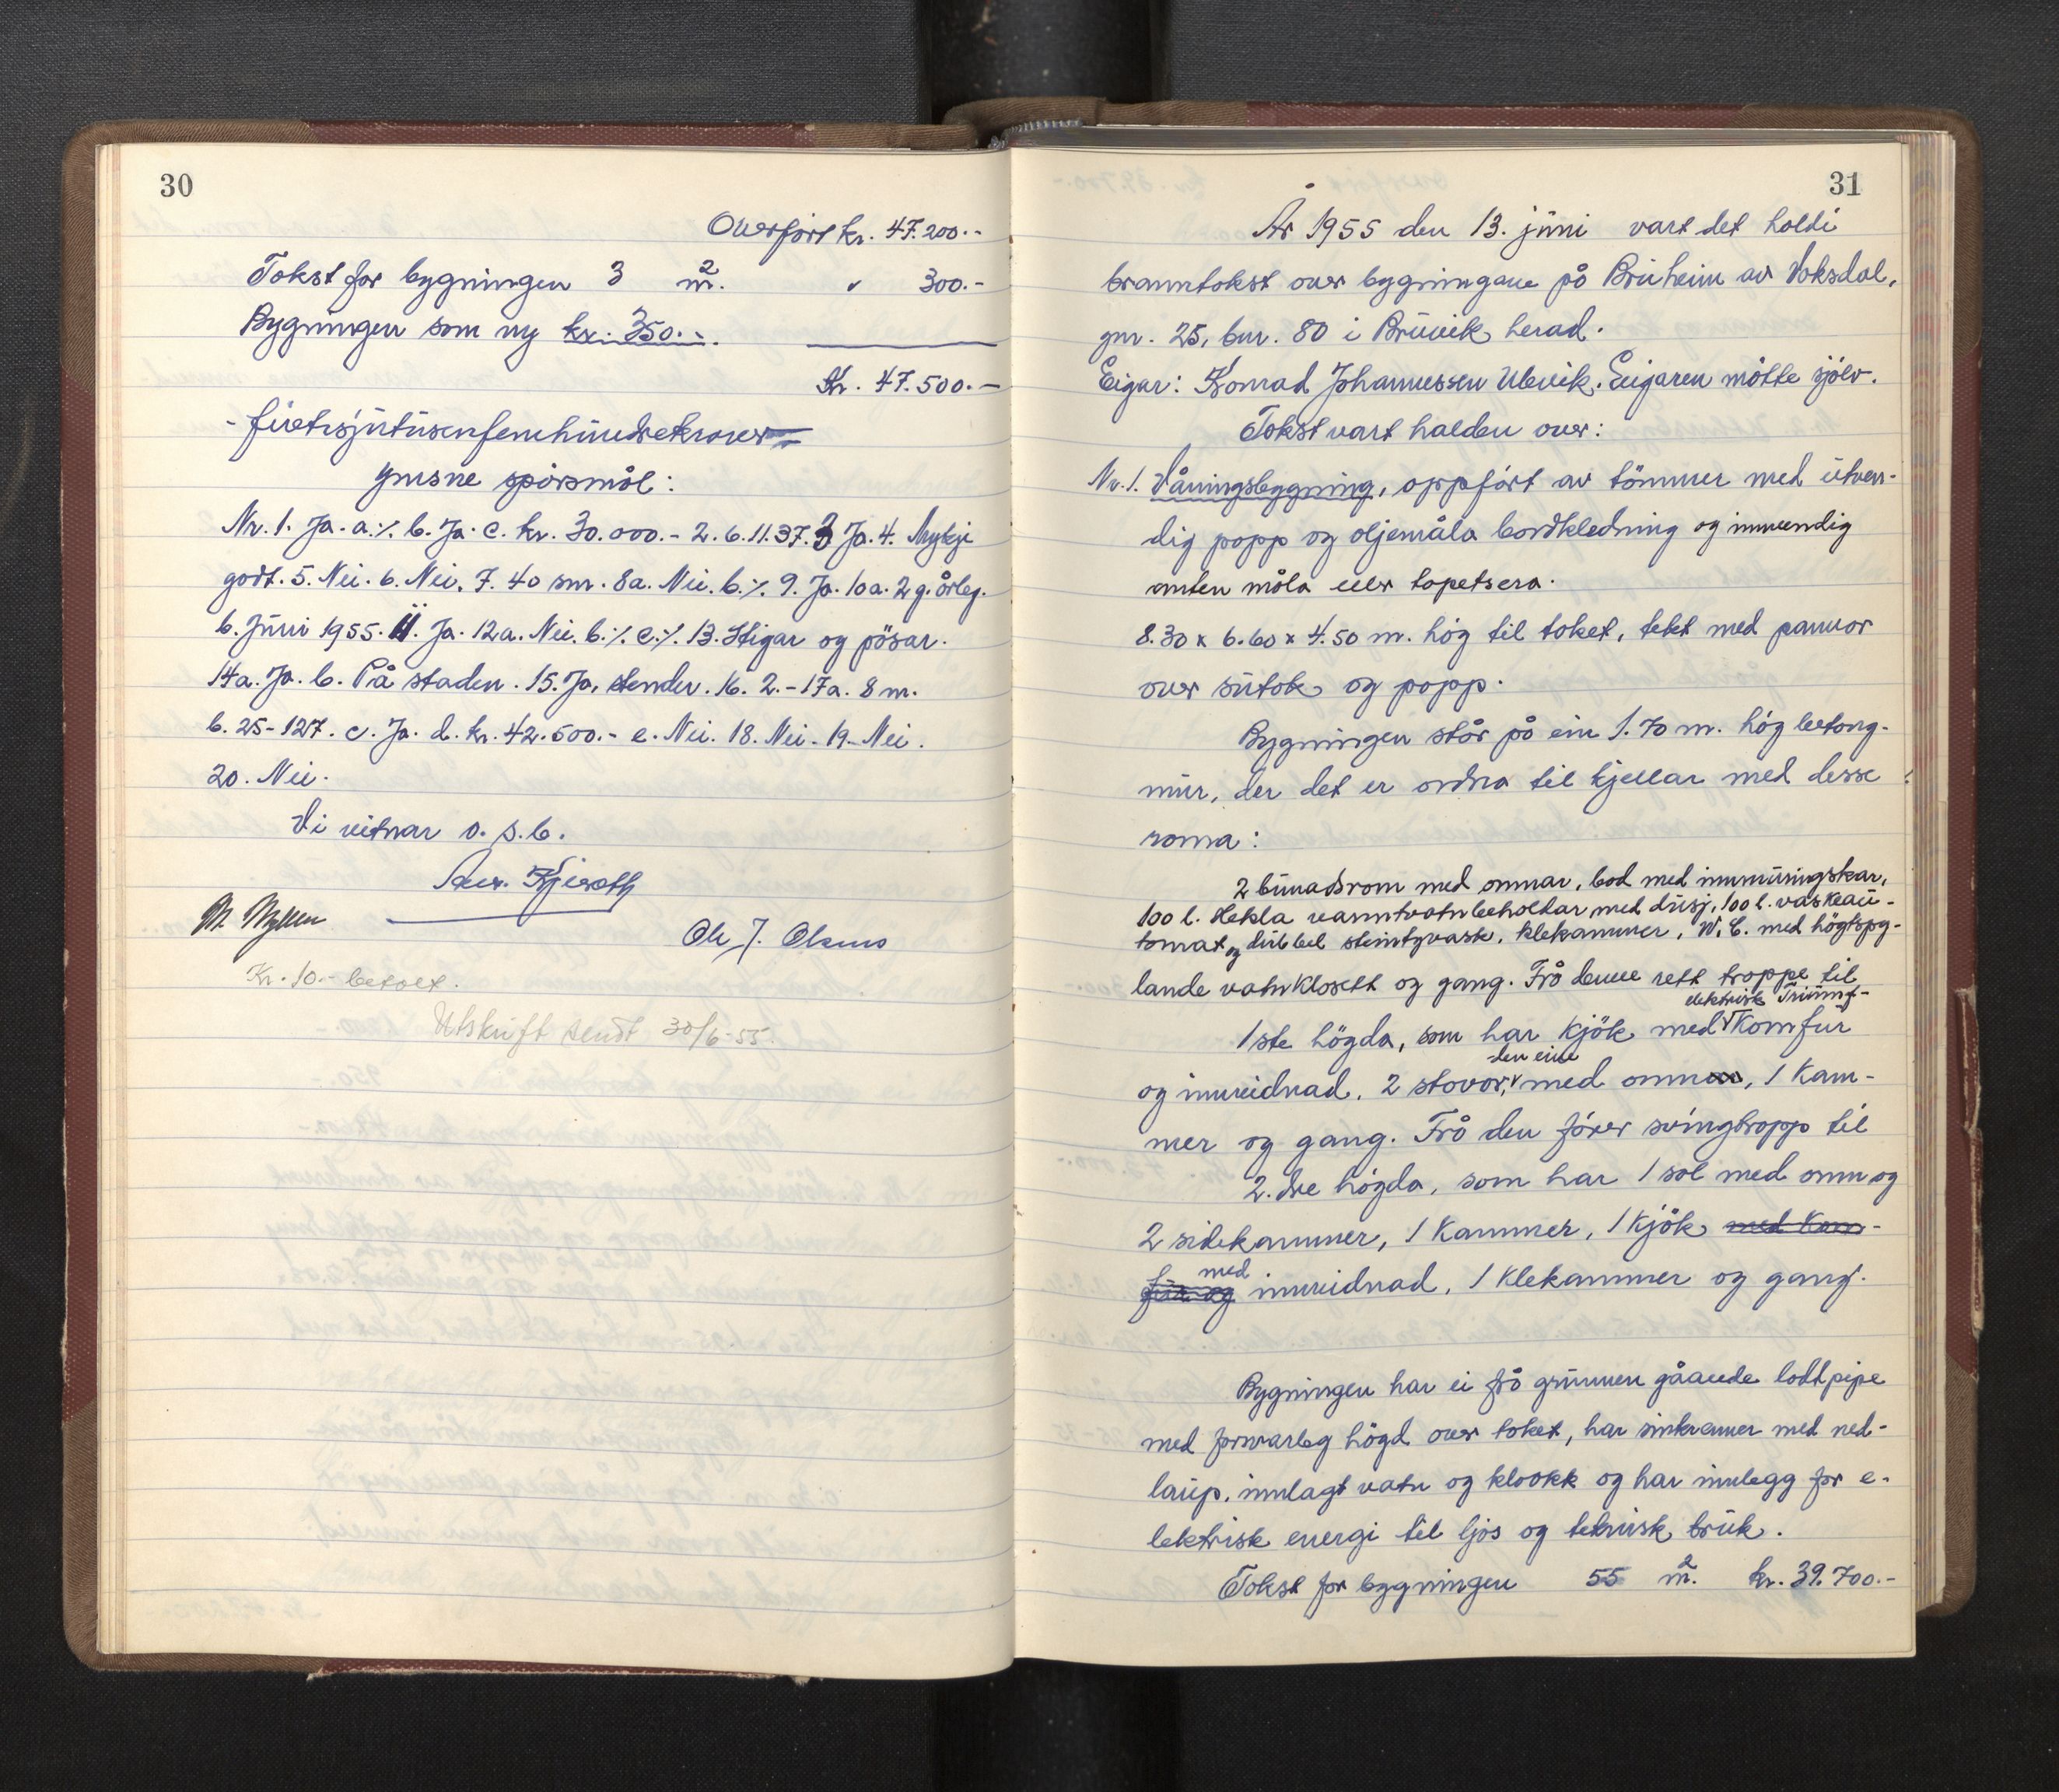 30
Overført kr. 47.200.-
Takst for bygningen 3 m². " 300.-
Bygningen som ny kr. 350.-.
Kr. 47.500.-
- førtisjutusenfemhundrekroner =
Ymsne spörsmål:
Nr. 1. Ja. a. ./. b. Ja. c. kr. 30.000.- 2. 6.11.37. 3 Ja. 4. Mykje
godt. 5. Nei. 6. Nei. 7. 40 sm. 8a. Nei. b. ./. 9. Ja. 10a. 2 g. årleg.
b. Juni 1955. 11. Ja. 12a. Nei. b. ./. c. ./. 13. Stigar og pösar.
14a. Ja. b. På staden. 15. Ja, stender. 16. 2. - 17a. 8 m.
b. 25-127. c. Ja. d. kr. 42.500.- e. Nei. 18. Nei. 19. Nei.
20. Nei.
Vi vitnar o. s. b.
M. Myllem
Kr. 10.- betalt.
Utskrift sendt 30/6-55.
31
År 1955 den 13. juni vart det holdi
branntakst over bygningane på Bruheim av Vaksdal,
gnr. 25, bnr. 80 i Bruvik herad.
Eigar: Konrad Johannessen Ulevik. Eigaren møtte sjølv.
Takst vart halden over:
Nr. 1. Våningsbygning, oppført av tömmer med utven-
dig papp og oljemåla bordkledning og innvendig
anten måla eller tapetsera.
8.30 x 6.60 x 4.50 m. høg til taket, tekt med pannor
over sutak og papp.
Bygningen står på ein 1.70 m. høg betong-
mur, der det er ordna til kjellar med desse
roma:
2 bunadsrom med omnar, bod med innmuringskar,
100 l. Hekla varmtvatnbeholdar med dusj, 100 l. vaskeau-
tomat og dubbel steintyvask, klekammer, W.C. med högtspy-
lande vatnklosett og gang. Frå denne rett trappe til
elektrisk Triumf-
1ste högda, som har kjök med komfur
den eine
og innreidnad, 2 stovor, med omnar, 1 kam-
mer og gang. Frå den fører svingtrapp til
2.dre högda, som har 1 sal med omn og
2 sidekammer, 1 kammer, 1 kjök med kom-
med
fur og innreidnad, 1 klekammer og gang.
Bygningen har ei frå grunnen gåande loddpipe
med forsvarleg högd over taket, har sinkrenner med ned-
laup, innlagt vatn og kloakk og har innlegg for e-
lektrisk energi til ljos og teknisk bruk.
Takst for bygningen 55 m². kr. 39.700.-